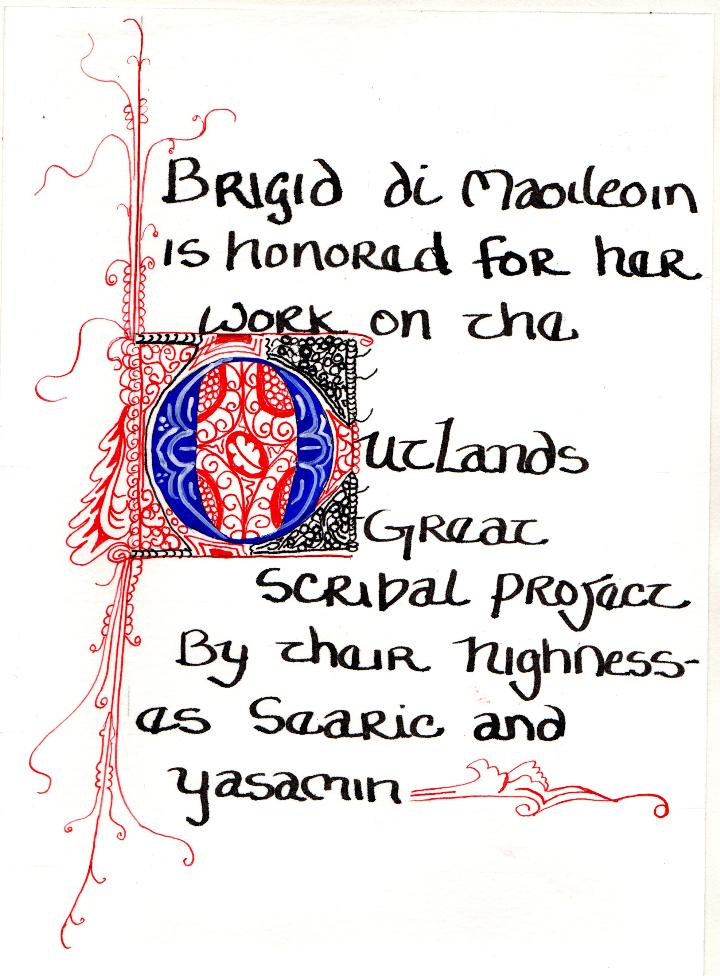 Brigid di Maoileoin
is honored for her
work on the
Outlands
Great
Scribal Project
By their highness-
es Searic and
yasamin